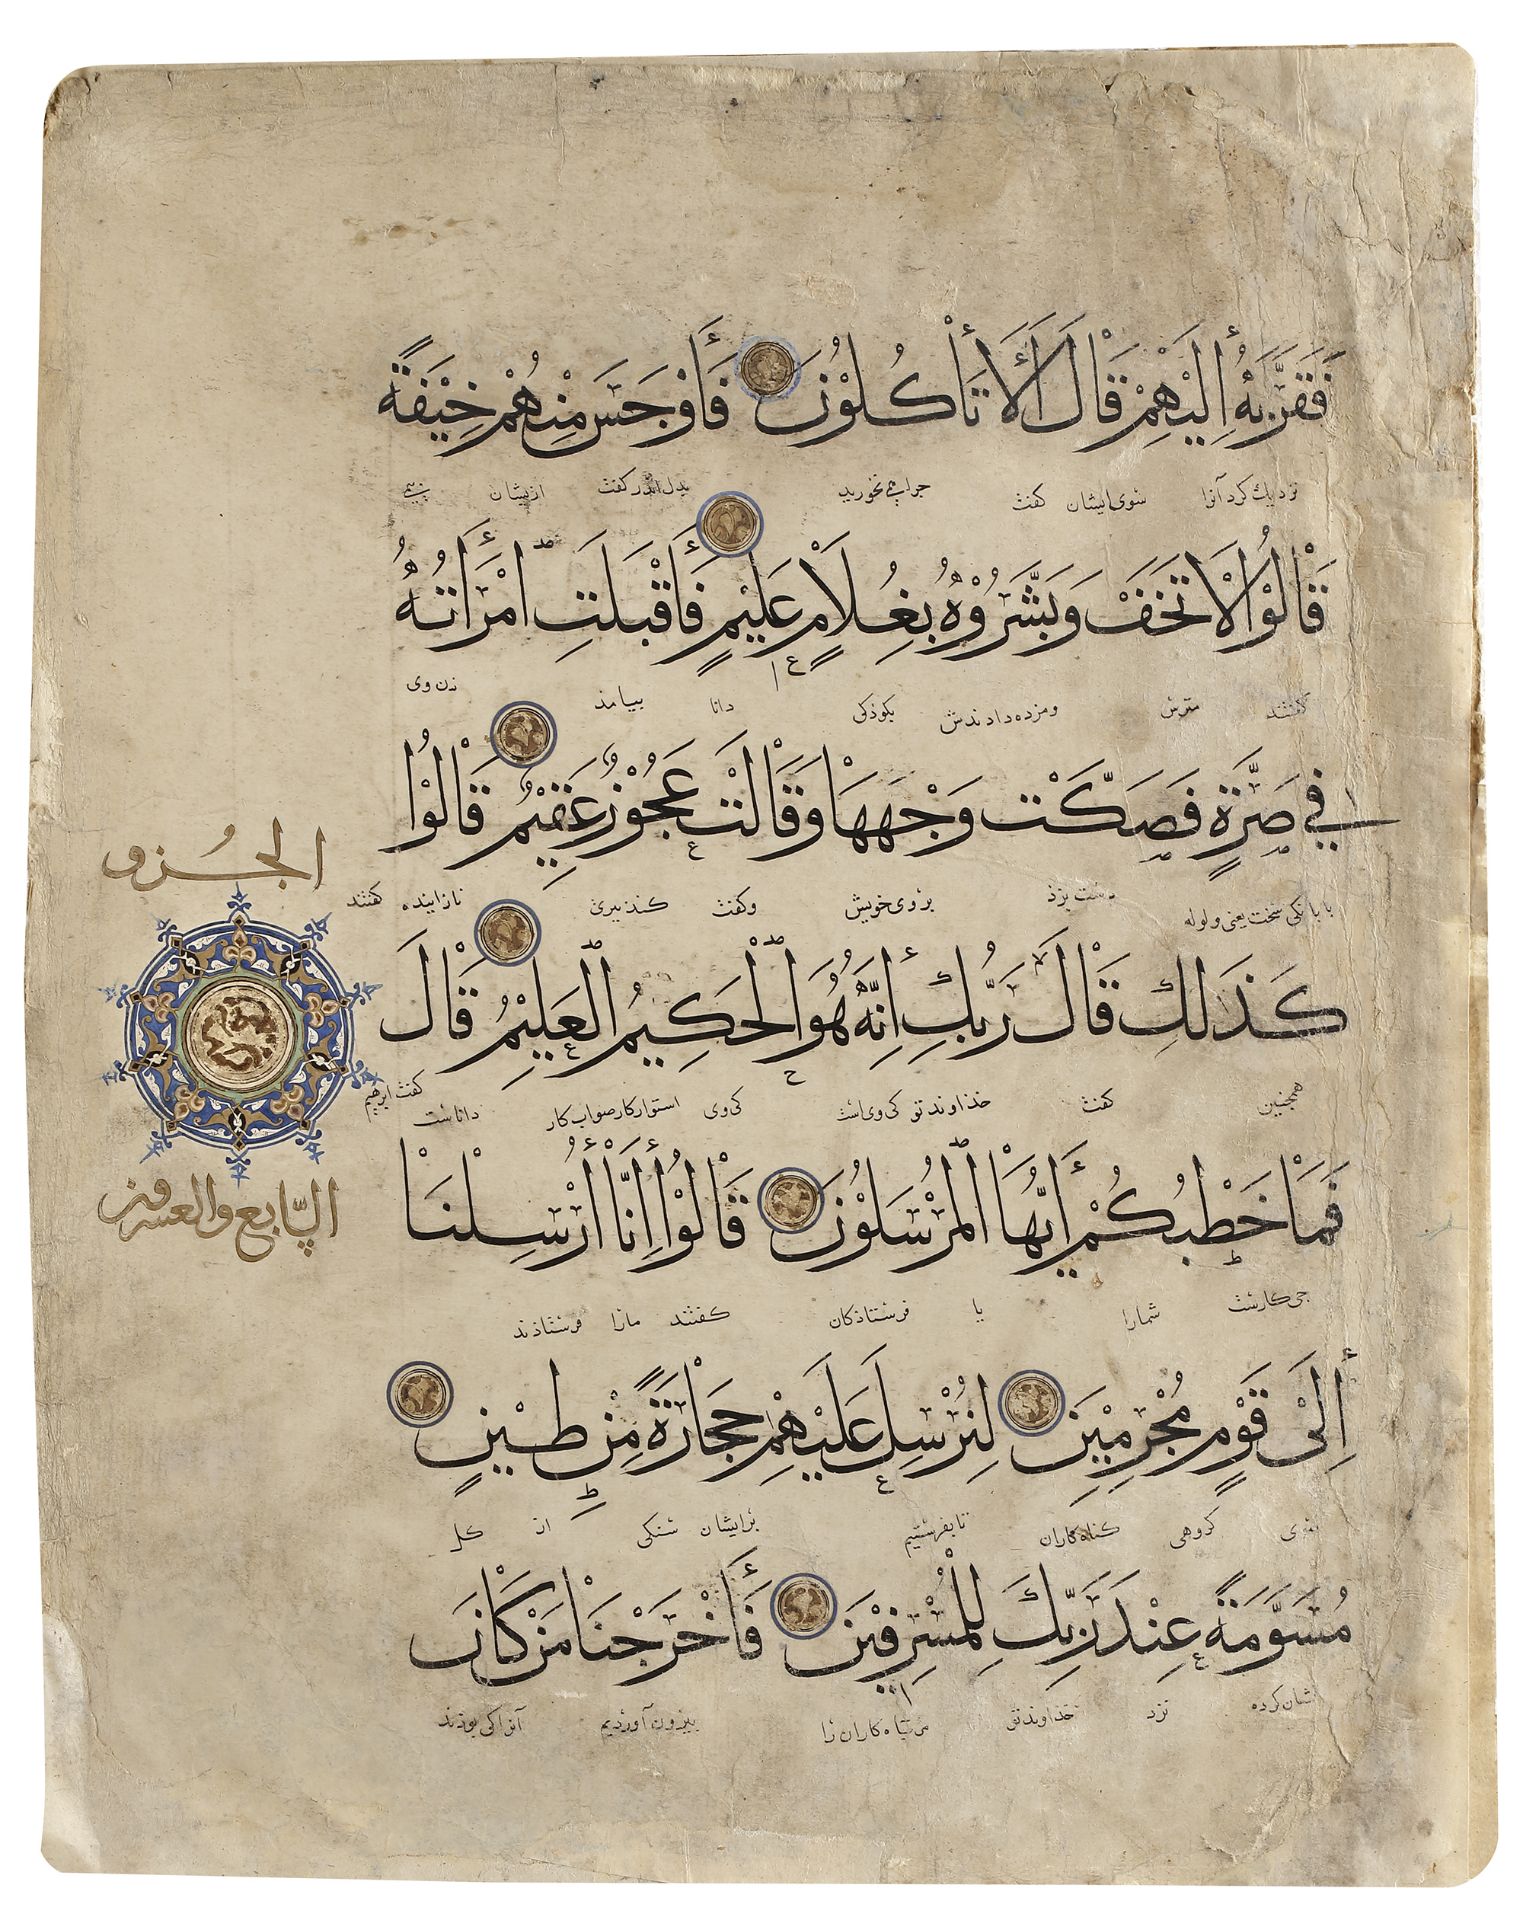 فَقَرَّبَهُ إِلَيْهِمْ قَالَ أَلَا تَأْكُلُوْنَ فَأَوْجَسَ مِنْهُمْ خِيْفَةً
نزدیك كرد آنرا سوی ایشان كفت جرا همی نخورید بدل اندر كفت ازیشان بیمی
قَالُوْا لَا تَخَفْ وَبَشَّرُوْهُ بِغُلَامٍ عَلِيْمٍ فَأَقْبَلَتِ امْرَأَتُهُ
كفتند مترس ومزده دادندش بكوذكی دانا بیامذ زن وی
فِي صَرَّةٍ فَصَكَّتْ وَجْهَهَا وَقَالَتْ عَجُوْزٌ عَقِيْمٌ قَالُوْا
با بانكی سخت یعنی ولوله دست بزد بروی خویش وكفت كندبیری نازاینده كفتند
كَذَلِكِ قَالَ رَبُّكِ إِنَّهُ هُوَ الْحَكِيمُ الْعَلِيْمُ قَالَ
همجنین كفت خذاوند تو كی وی است كی وی استوار كار صواب كار داناست كفت ابرهیم
الجزو
السابع والعشرون
فَمَا خَطْبُكُمْ أَيُّهَا الْمُرْسَلُوْنَ قَالُوْا إِنَّا أُرْسِلْنَا
جی كارست شمارا یا فرستاذكان كفتند مارا فرستاذند
إِلَى قَوْمٍ مُجْرِمِيْنَ لِنُرْسِلَ عَلَيْهِمْ حِجَارَةً مِنْ طِيْنٍ
سوی كروهی كناه كاران تا بفرستیم برایشان سنكی از كل
مُسَوَّمَةً عِنْدَ رَبِّكَ لِلْمُسْرِفِيْنَ فَأَخْرَجْنَا مَنْ كَانَ
نشان كرده نزد خذاوند تو مر تباه كاران را بیرون آوردیم آنرا كی بوذند